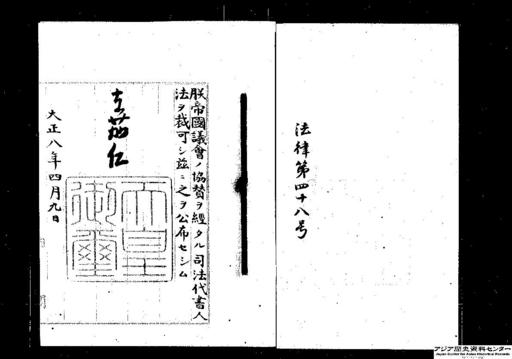 法律第四十八号
朕帝國議會ノ協賛ヲ經タル司法代書人
法ヲ裁可シ茲ニ之ヲ公布セシム
嘉仁
天皇
御璽
大正八年四月九日
アジア歴史資料センター
Japan Center for Asian Historical Records